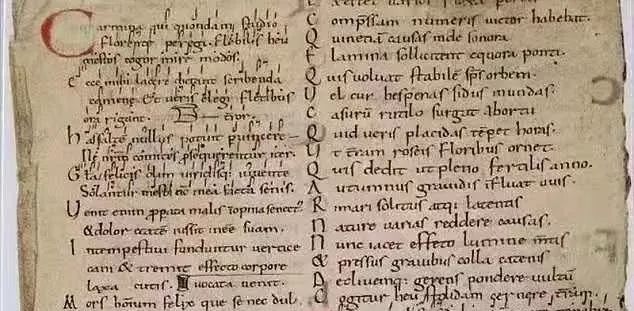 Carmina qui quondam studio
Florente peregi. Flebilis heu
mestos cogor inire modos.
Ecce mihi lacere dictant scribenda
camene. Et veris elegi fletibus
ora rigant.
has saltē nullus potuit puincere
Ne nrm̄ comites psequerentur iter.
Gl̄a felicis olim viridisq; iuvente
Solantur mesti nc mea fata senis.
Venit enim pperata malis inopina senect;
& dolor etatē iussit inēe suam.
Intempestivi funduntur vertice
cani & tremit effeto corpore
laxa cutis. vocata venit.
Mors hominum felix que se nec dul
Comp̄ssam numeris victor habebat.
Quinetiā causas unde sonora
Flamina sollicitent equora ponti.
Quis voluat stabilē sp̄s orbem.
Vel cur hesperias sidus in undas.
Casurū rutilo surgat ab ortu
Quid veris placidas tēpet horas.
Ut t̄ram roseis floribus ornet.
Quis dedit ut pleno fertilis anno.
Autumnus gravidis ifluat uvis.
Rimari solitus atq; latentis
Nature varias reddere causas.
Nunc iacet effeto lumine m̄tis
& pressus gravibus colla catenis
Declivemq; gerens pondere vultū
Cogitur heu stolidam cernere t̄rā.